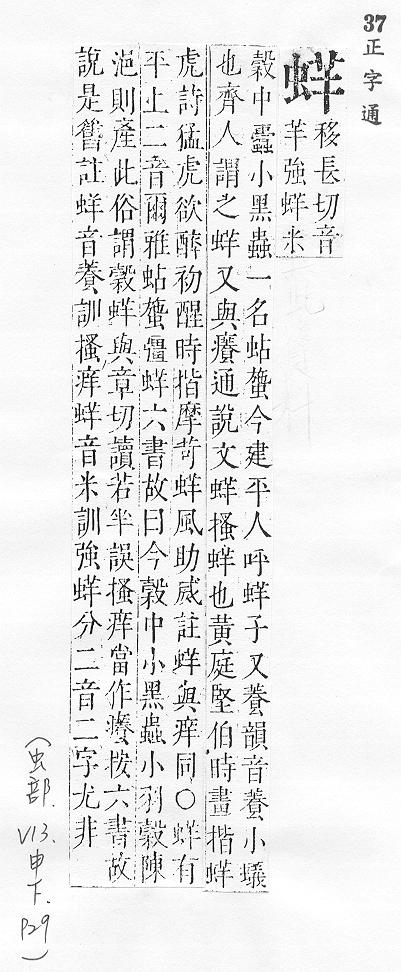 37
正字通
蛘
移長切音
羊強蛘米
穀中蠹小黑蟲一名蛄䗐今建平人呼蛘子又養韻音養小蟻
也齊人謂之蛘又與癢通說文蛘搔蛘也黃庭堅伯時畫揩蛘
虎詩猛虎欲醉初醒時揩摩苛蛘風助威註蛘與痒同○蛘有
平上二音爾雅蛄䗐彊蛘六書故曰今穀中小黑蟲小羽穀陳
浥則產此俗謂穀蛘與章切讀若半誤搔痒當作癢按六書故
說是舊註蛘音養訓搔痒蛘音米訓強蛘分二音二字尤非
(虫部.
V13.
申
下.
P29
)